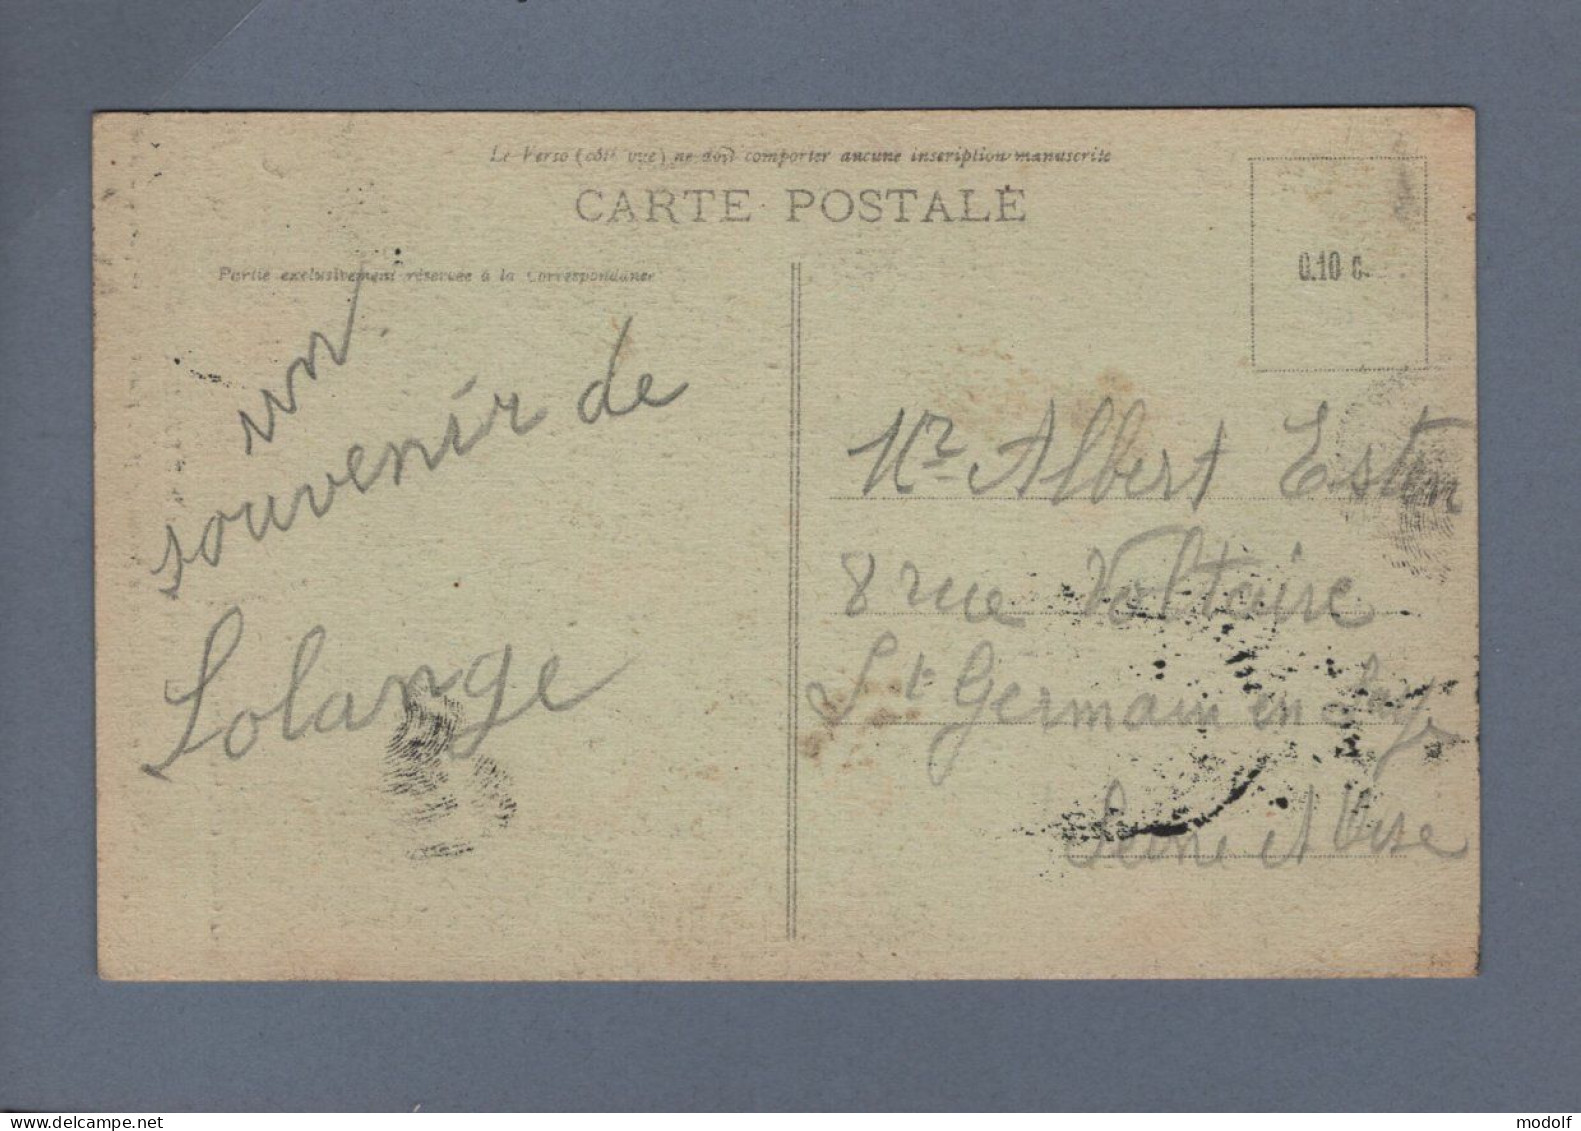 Le Verso (côté vue) ne doit comporter aucune inscription manuscrite
CARTE POSTALE
Partie exclusivement réservée à la Correspondance
0.10 c.
un
souvenir de
Solange
Mr Albert
8 rue Voltaire
St Germain en Laye
Seine et Oise
www.delcampe.net
modolf